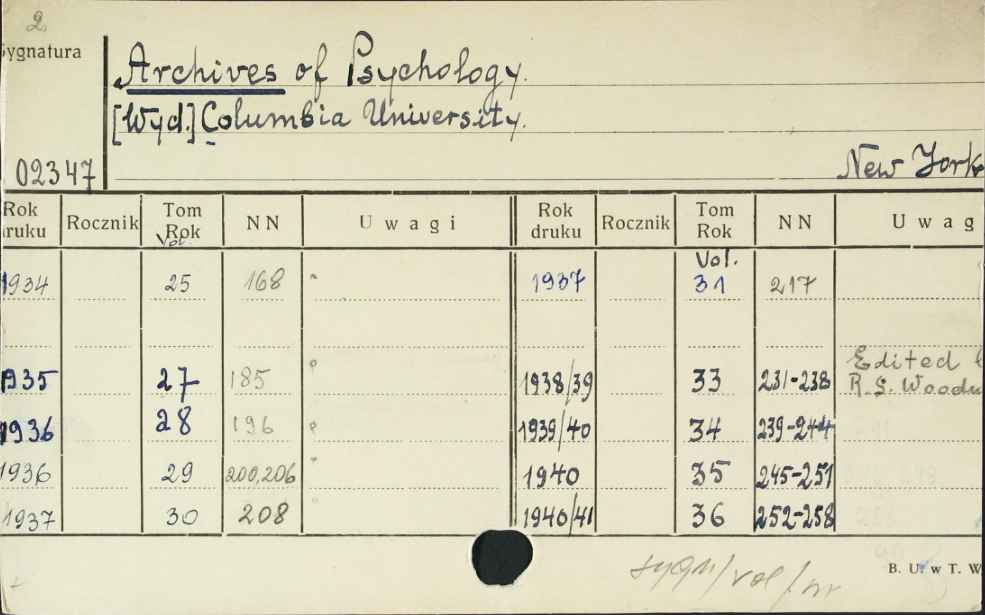 2
Sygnatura
Archives of Psychology.
[Wyd.] Columbia University.
02347
New York
Rok druku Rocznik Tom Rok Vol. NN Uwagi Rok druku Rocznik Tom Rok NN Uwag
Vol.
1934 25 168 " 1937 31 217
Edited
1935 27 185 " 1938/39 33 231-238 R.S.
1936 28 196 " 1939/40 34 239-244
1936 29 200,206 " 1940 35 245-251
1937 30 208 " 1940/41 36 252-258
sygn/vol/nr
B. U. w T. W